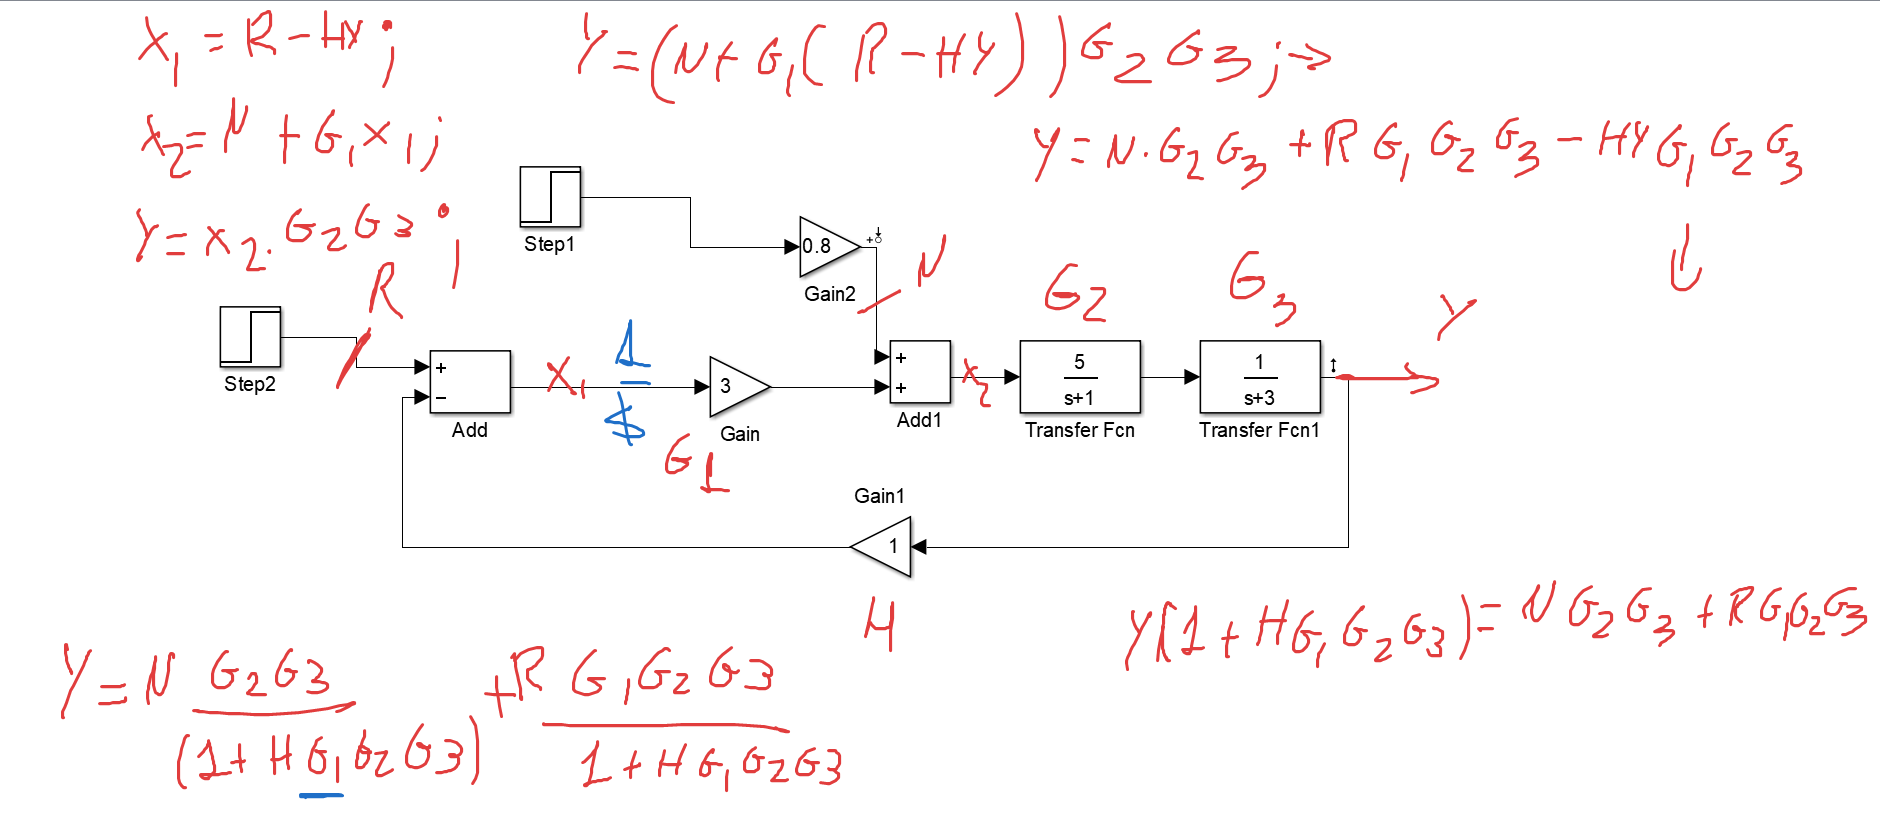 X₁ = R - HY;
Y = (N + G₁(R - HY))G₂G₃; →
X₂ = N + G₁X₁;
Y = N·G₂G₃ + RG₁G₂G₃ - HYG₁G₂G₃
Y = X₂·G₂G₃;
Step1
0.8
Gain2
N
R
G₂
G₃
Y
Step2
+
-
Add
X₁
1
S
3
Gain
G1
+
+
Add1
X₂
5
s+1
Transfer Fcn
1
s+3
Transfer Fcn1
Gain1
1
H
Y(1 + HG₁G₂G₃) = NG₂G₃ + RG₁G₂G₃
Y = N G₂G₃ / (1 + HG₁G₂G₃) + R G₁G₂G₃ / 1 + HG₁G₂G₃